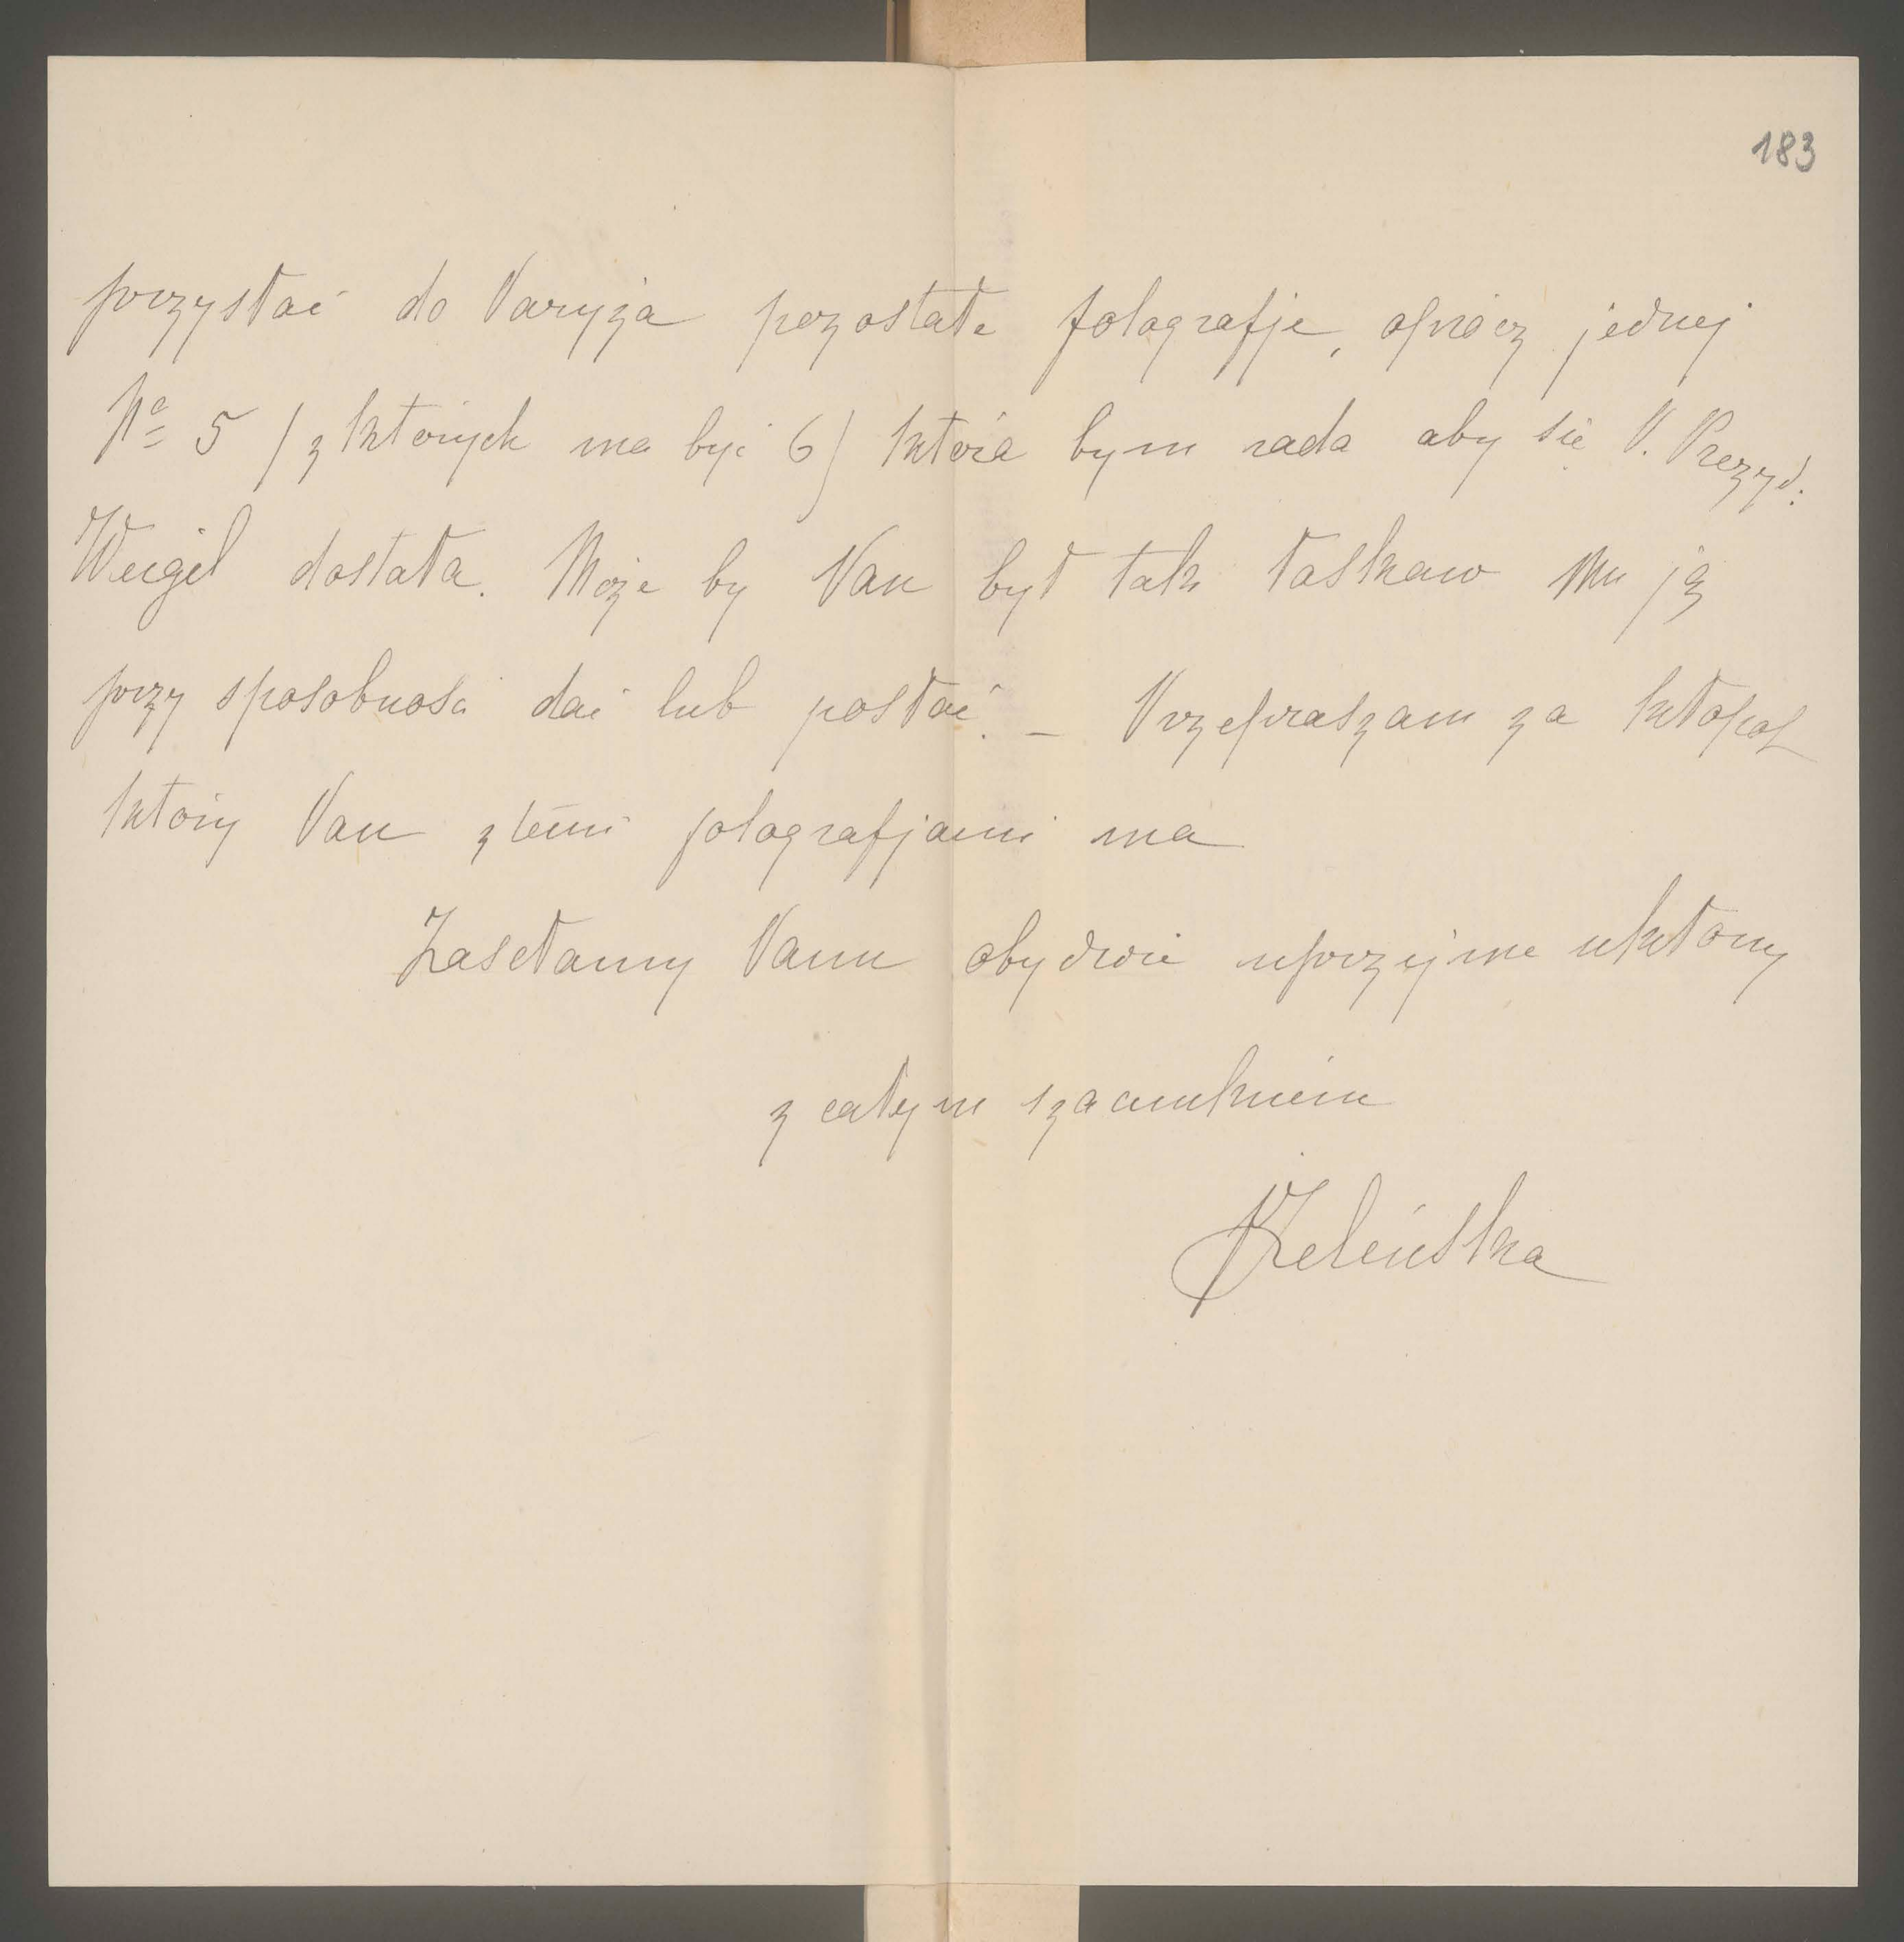 183
przysłać do Paryża pozostałe fotografje, oprócz jednej
Nº 5 / z których ma być 6) która bym rada aby się P. Prezyd:
Weigel dostała. Może by Pan był tak łaskaw Mu ją
przy sposobności dać lub posłać. – Przepraszam za kłopot
który Pan z temi fotografjami ma
Zasełamy Panu obydwie uprzejme ukłony
z całym szacunkiem
Zeleńska